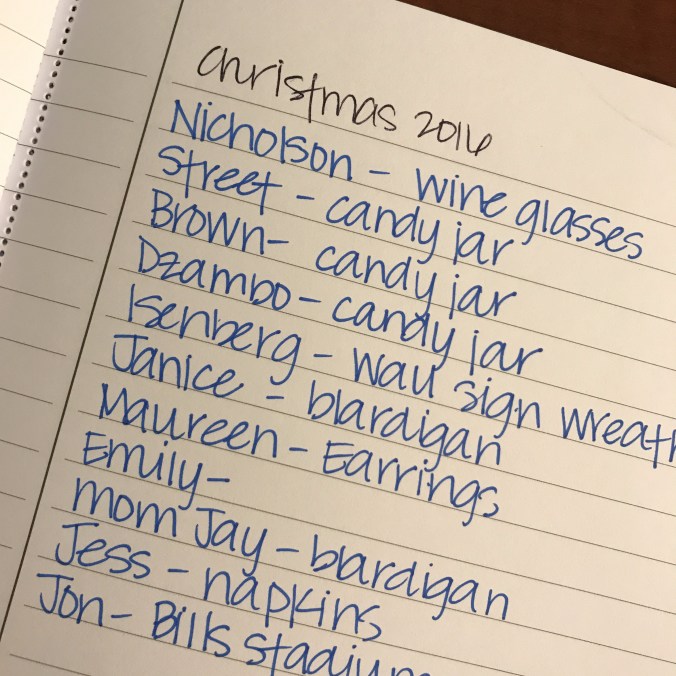 christmas 2016
Nicholson - wine glasses
Street - candy jar
Brown - candy jar
Dzambo - candy jar
Isenberg - wall sign wreath
Janice - blardigan
Maureen - Earrings
Emily -
mom Jay - blardigan
Jess - napkins
Jon - Bills Stadium